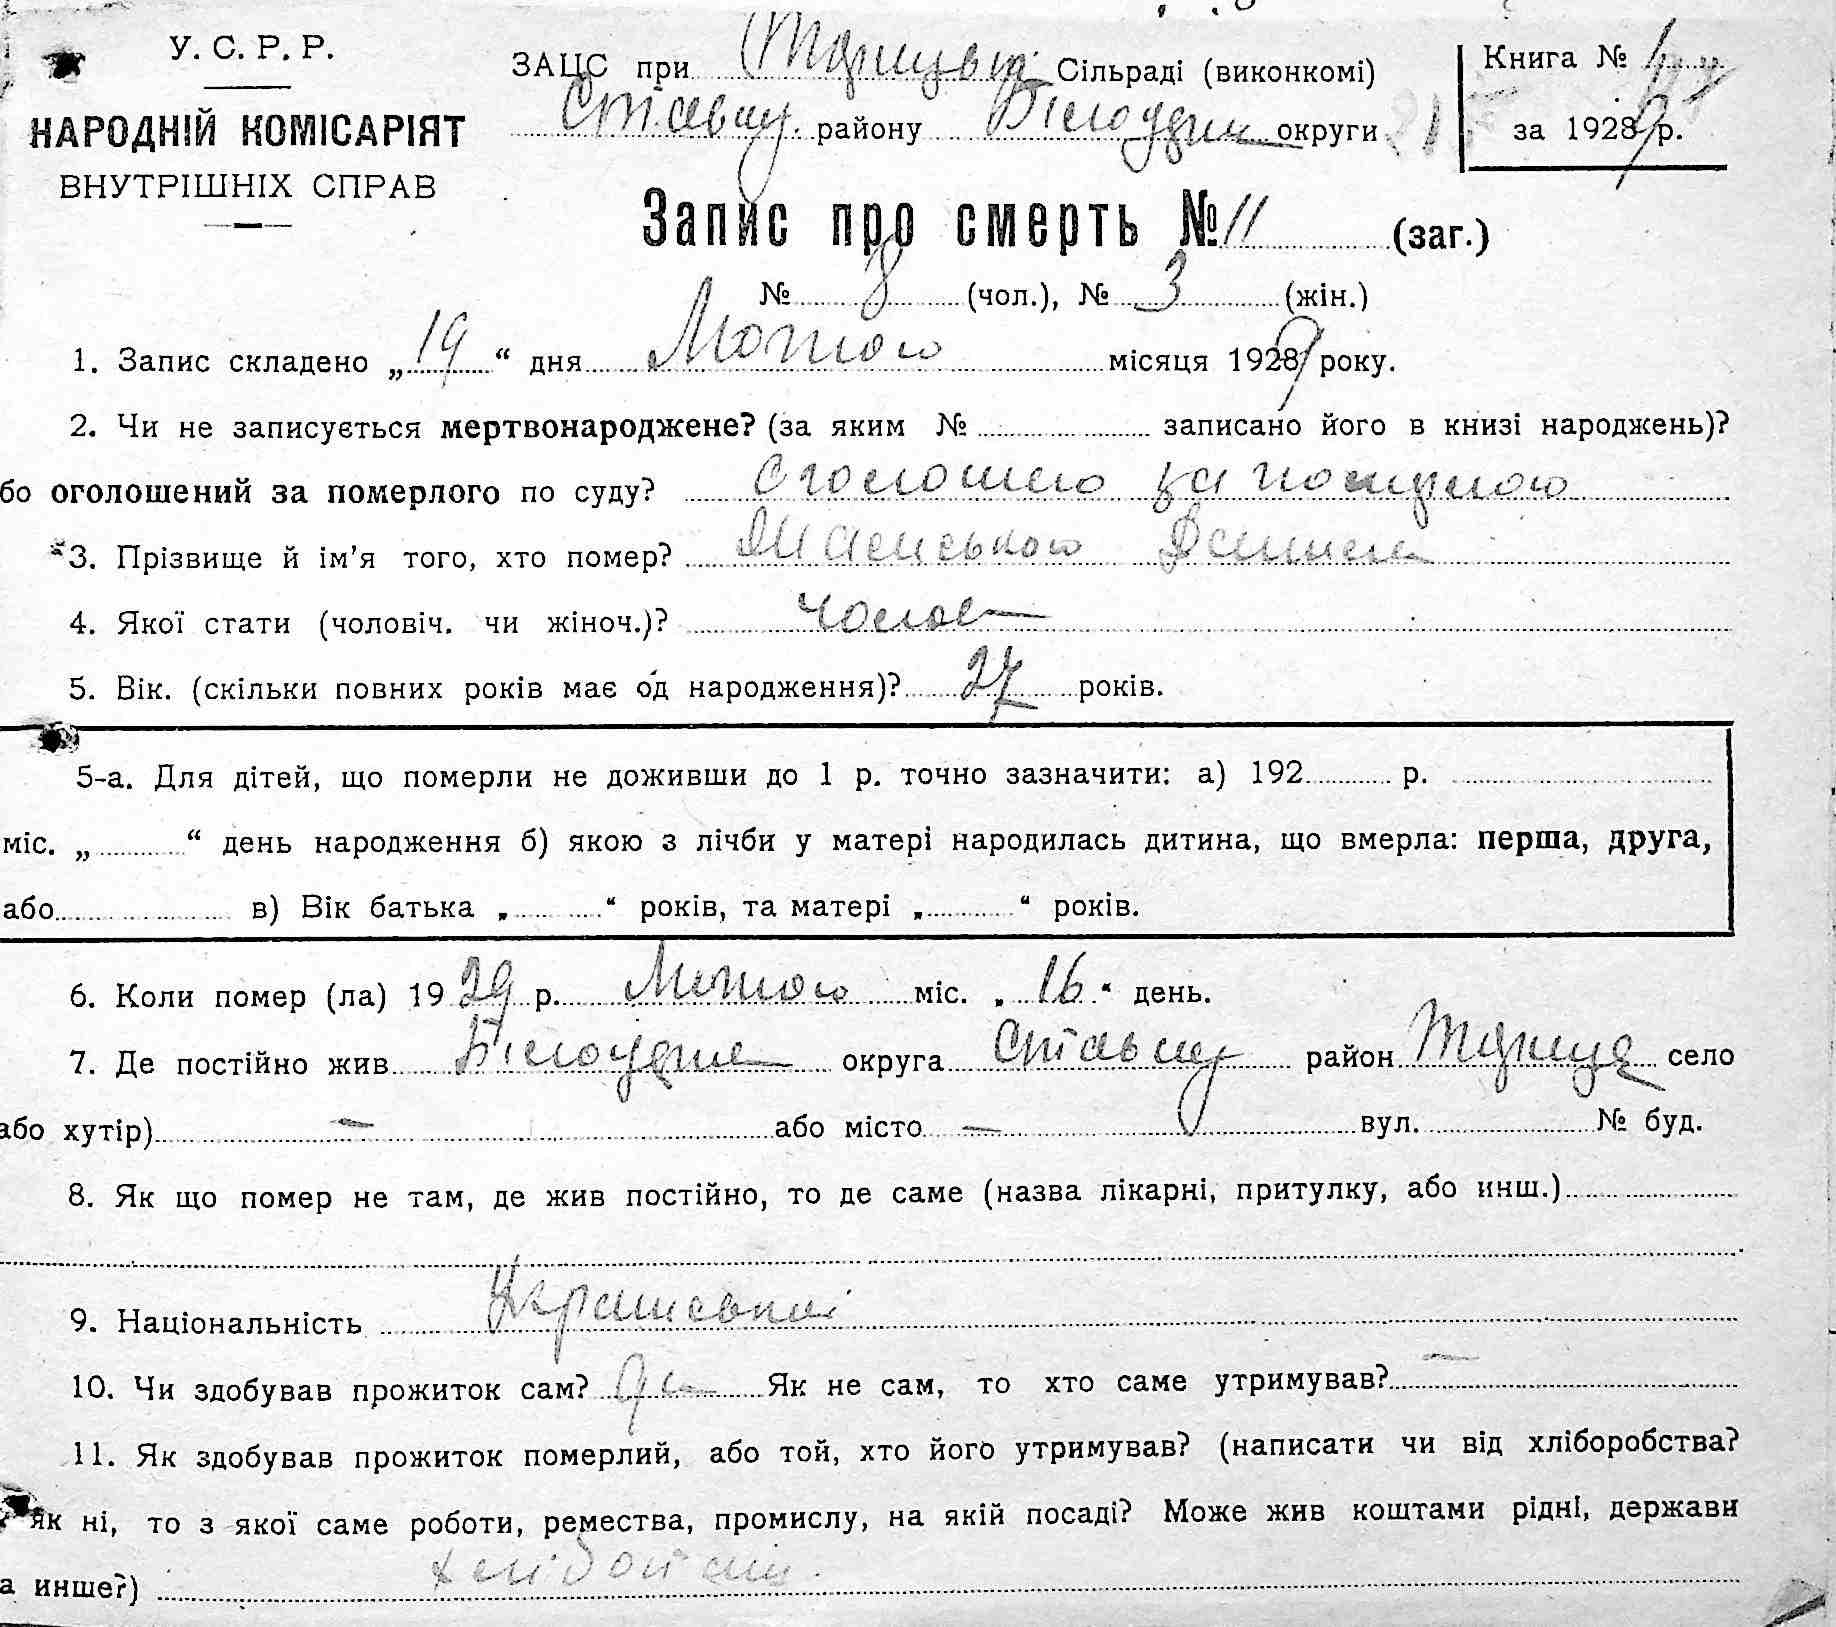 У. С. Р. Р.
НАРОДНІЙ КОМІСАРІЯТ
ВНУТРІШНІХ СПРАВ
ЗАЦС при Сільраді (виконкомі)
Ставищ. району Білоцерк округи
Книга №
за 1929 р.
Запис про смерть № 11 (заг.)
№ 8 (чол.), № 3 (жін.)
1. Запис складено „19“ дня Лютого місяця 1929 року.
2. Чи не записується мертвонароджене? (за яким № записано його в книзі народжень)?
бо оголошений за померлого по суду?
3. Прізвище й ім’я того, хто помер?
4. Якої стати (чоловіч. чи жіноч.)? чолов
5. Вік. (скільки повних років має од народження)? 27 років.
5-а. Для дітей, що померли не доживши до 1 р. точно зазначити: а) 192 р.
міс. „ “ день народження б) якою з лічби у матері народилась дитина, що вмерла: перша, друга,
або в) Вік батька „ “ років, та матері „ “ років.
6. Коли помер (ла) 1929 р. Лютого міс. „16“ день.
7. Де постійно жив Білоцерк округа Ставищ район село
або хутір) — або місто — вул. № буд.
8. Як що помер не там, де жив постійно, то де саме (назва лікарні, притулку, або инш.)
9. Національність
10. Чи здобував прожиток сам? да Як не сам, то хто саме утримував? —
11. Як здобував прожиток померлий, або той, хто його утримував? (написати чи від хліборобства?
Як ні, то з якої саме роботи, ремества, промислу, на якій посаді? Може жив коштами рідні, держави
а инше?)